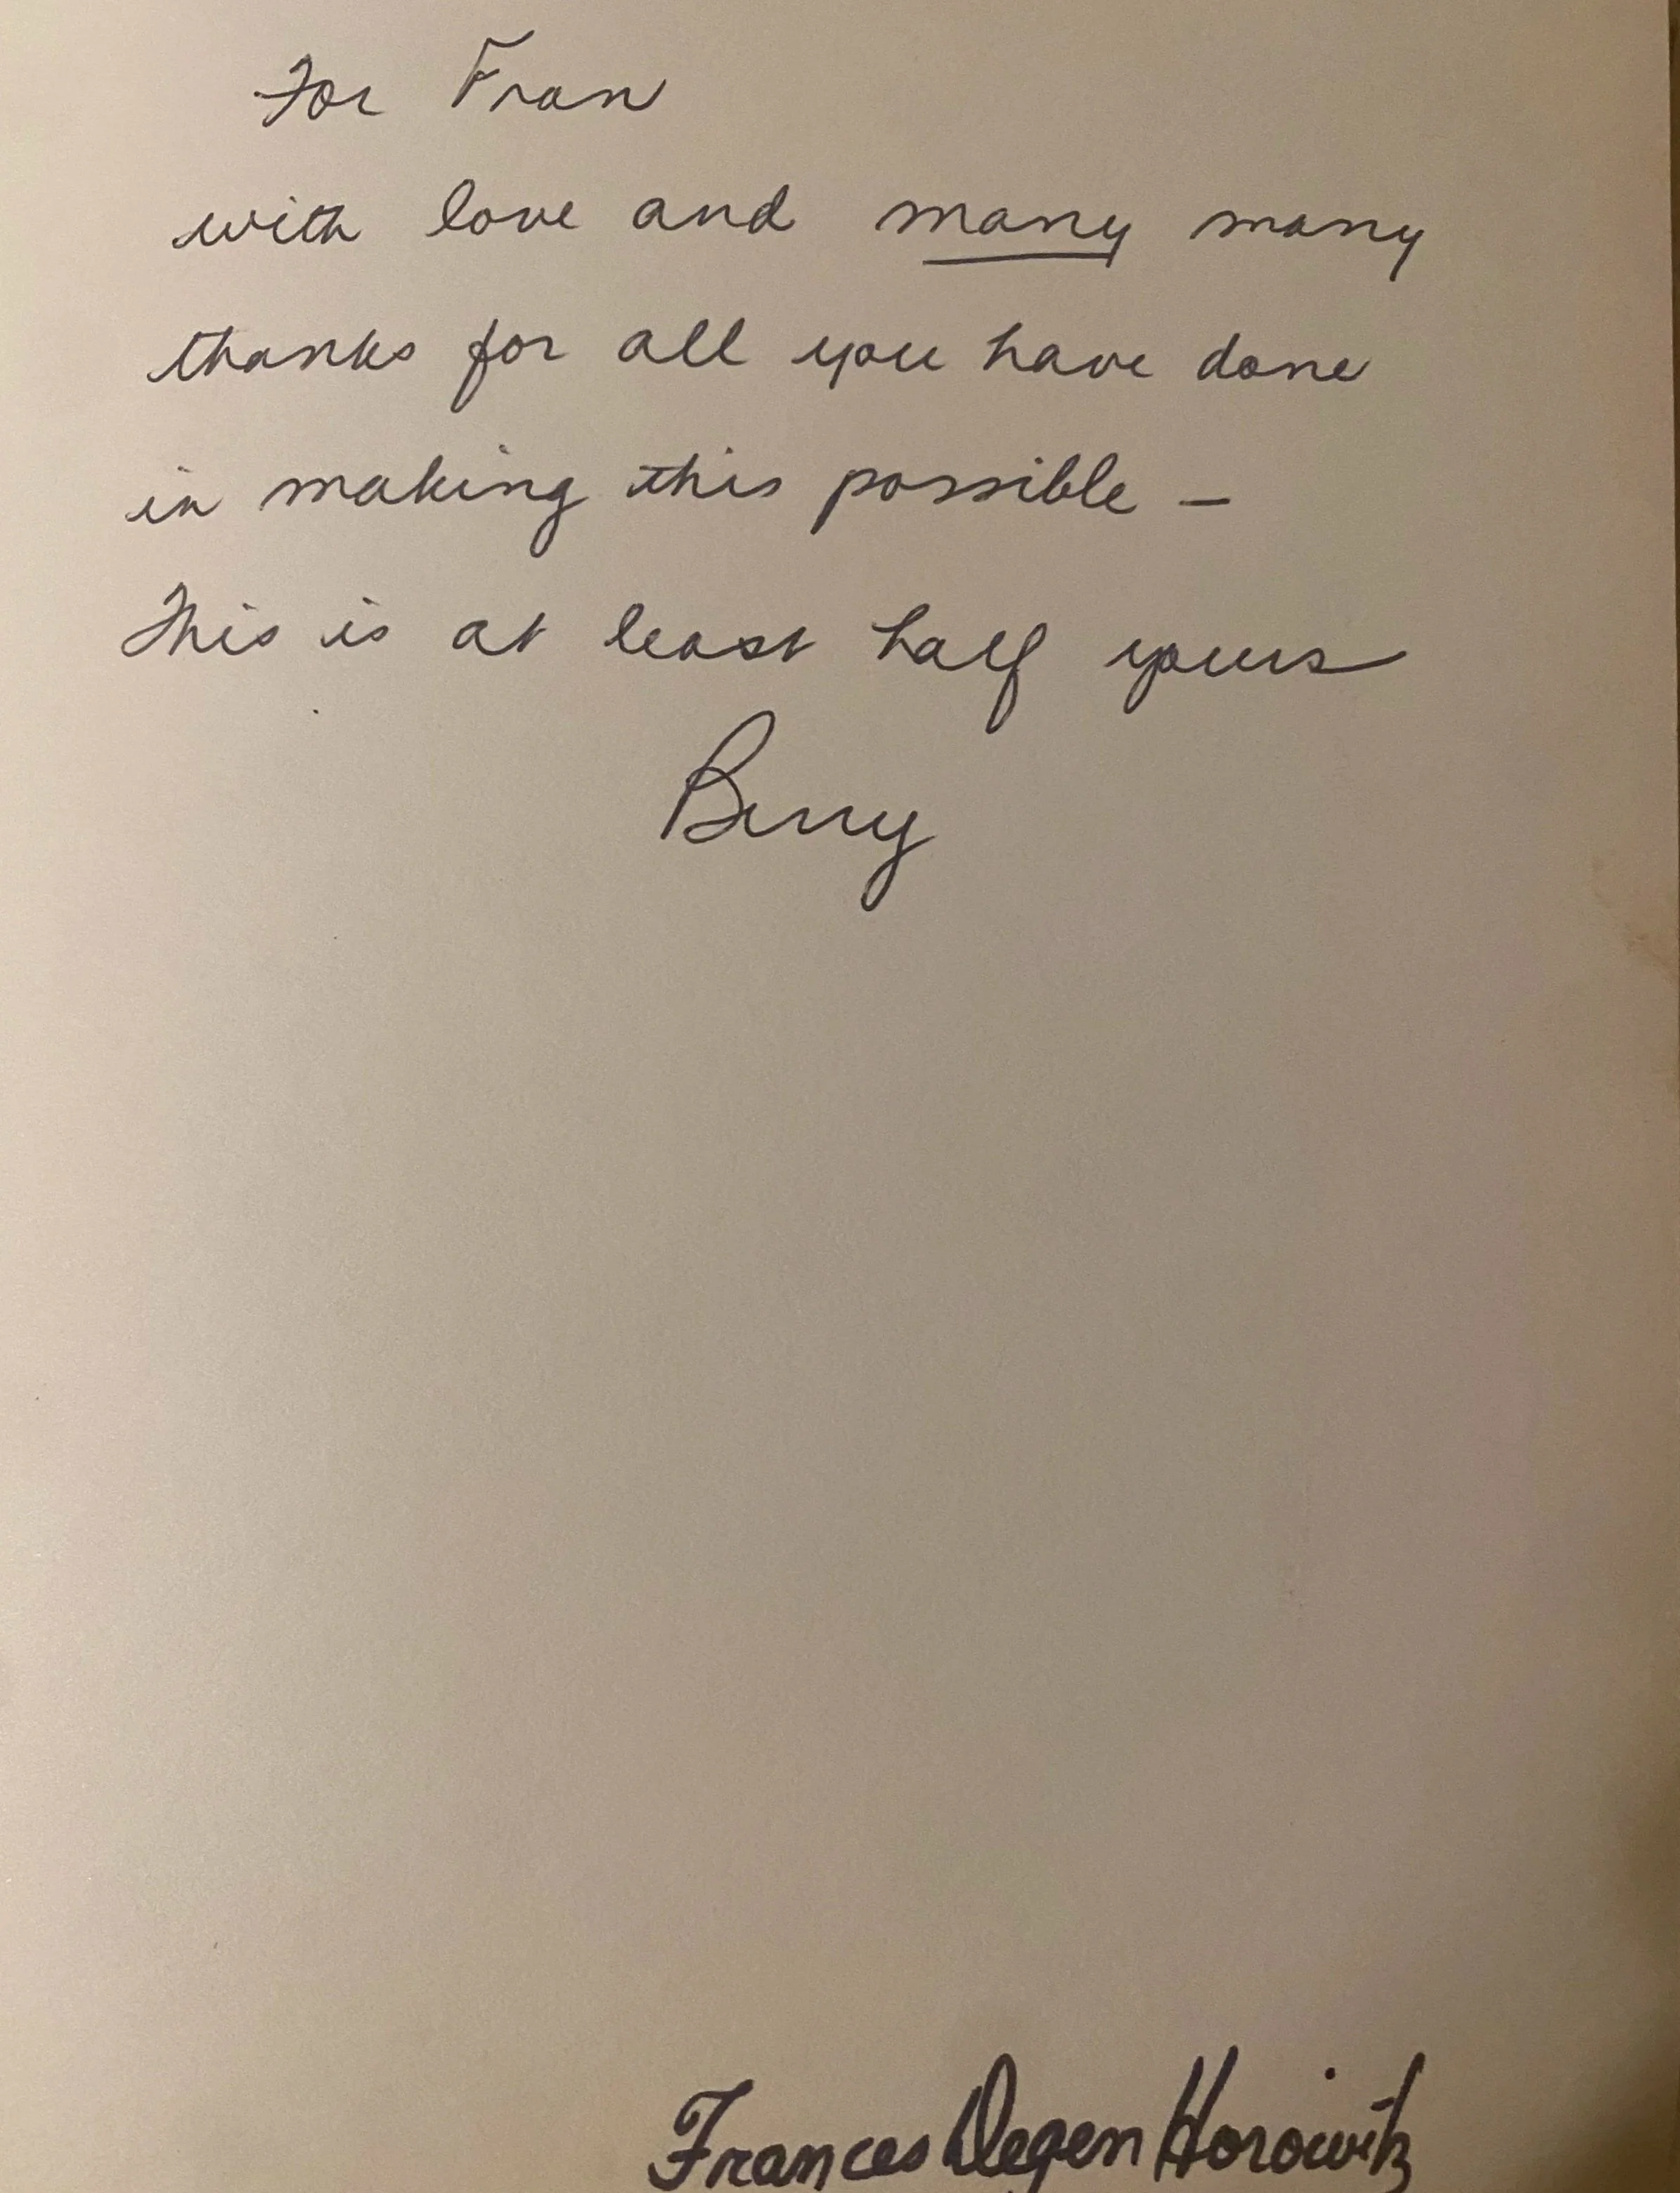 For Fran
with love and many many
thanks for all you have done
in making this possible –
This is at least half yours
Berry
Frances Degen Horowitz